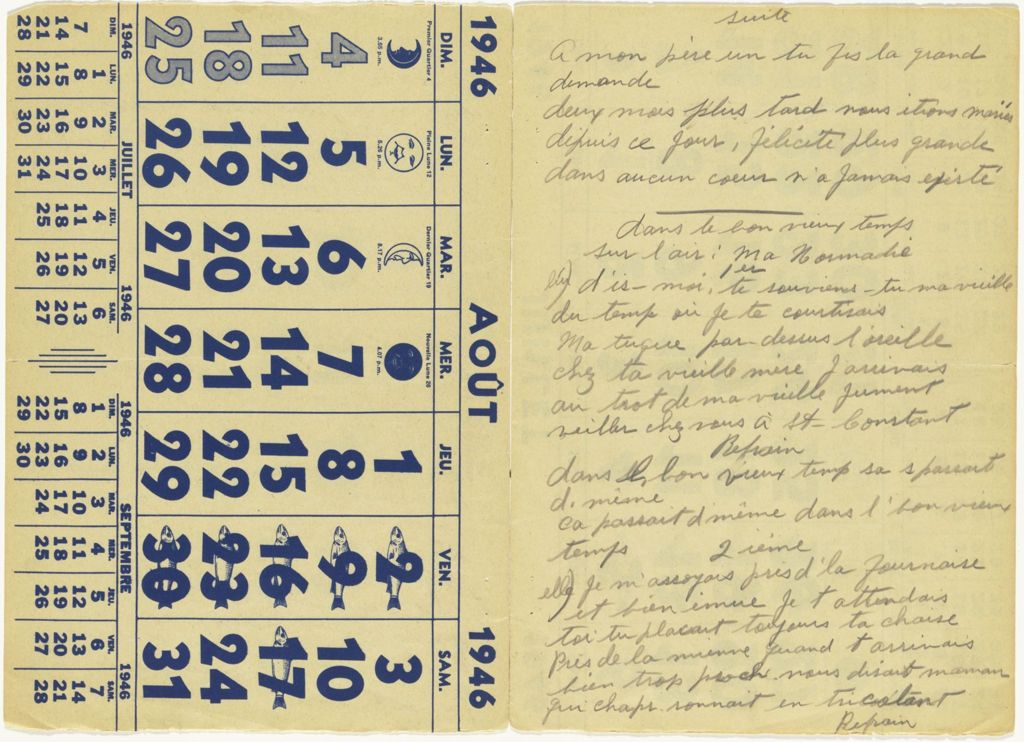 1946 AOÛT 1946
DIM. LUN. MAR. MER. JEU. VEN. SAM.
Premier Quartier 4
3.55 p.m.
Pleine Lune 12
5.26 p.m.
Dernier Quartier 19
8.17 p.m.
Nouvelle Lune 26
4.07 p.m.
1 2 3
4 5 6 7 8 9 10
11 12 13 14 15 16 17
18 19 20 21 22 23 24
25 26 27 28 29 30 31
1946 JUILLET 1946
DIM. LUN. MAR. MER. JEU. VEN. SAM.
1 2 3 4 5 6
7 8 9 10 11 12 13
14 15 16 17 18 19 20
21 22 23 24 25 26 27
28 29 30 31
1946 SEPTEMBRE 1946
DIM. LUN. MAR. MER. JEU. VEN. SAM.
1 2 3 4 5 6 7
8 9 10 11 12 13 14
15 16 17 18 19 20 21
22 23 24 25 26 27 28
29 30
suite
A mon père un tu fis la grand
demande
deux mois plus tard nous étions mariés
depuis ce jour, félicité plus grande
dans aucun coeur n'a jamais existé
dans le bon vieux temps
sur l'air: Ma Normadie
1er
d is-moi, te souviens-tu ma vieille
du temps où je te courtisais
Ma tuque par-dessus l'oreille
chez ta vieille mère j'arrivais
au trot de ma vieille jument
veiller chez vous à St-Constant
Refrain
dans l bon vieux temp sa s passait
d. même
ca passait d même dans l'bon vieux
temps 2 ième
elle) Je m'assoyais près d'la fournaise
et bien émue je t attendais
toi tu placait toujours ta chaise
Près de la mienne quand t'arrivais
bien trop proch. nous disait maman
qui chap. ronnait en tricotant
Refrain